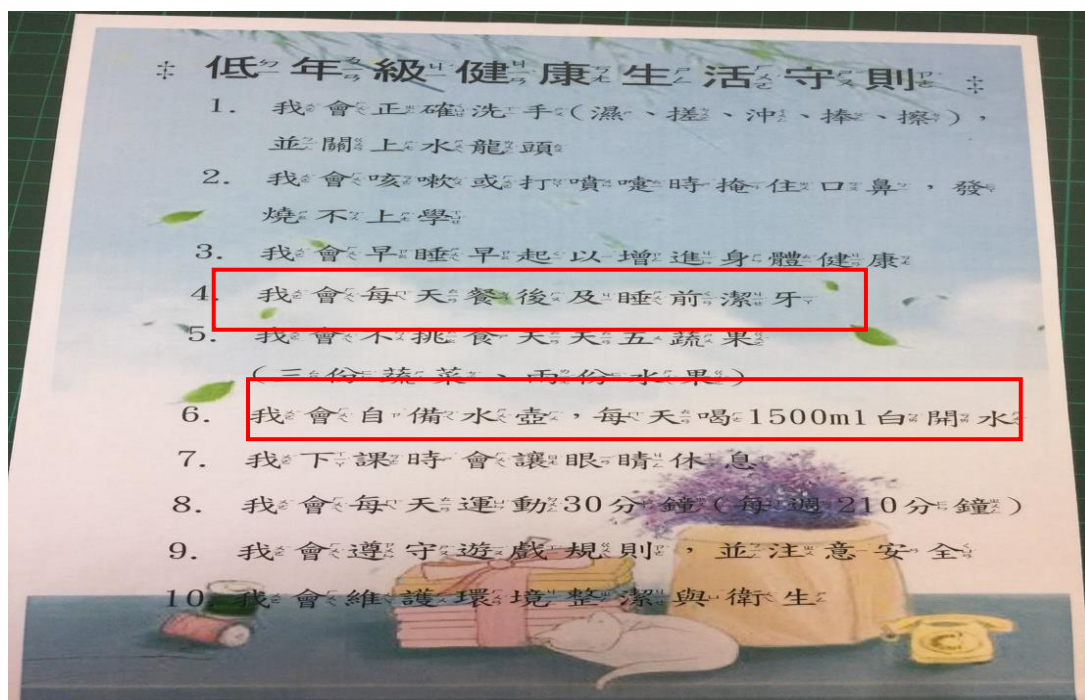 低年級健康生活守則
1. 我會正確洗手(濕、搓、沖、捧、擦)，
並關上水龍頭
2. 我會咳嗽或打噴嚏時掩住口鼻，發
燒不上學
3. 我會早睡早起以增進身體健康
4. 我會每天餐後及睡前潔牙
5. 我會不挑食天天五蔬果
(三份蔬菜、兩份水果)
6. 我會自備水壺，每天喝1500ml白開水
7. 我下課時會讓眼睛休息
8. 我會每天運動30分鐘(每週210分鐘)
9. 我會遵守遊戲規則，並注意安全
10 我會維護環境整潔與衛生